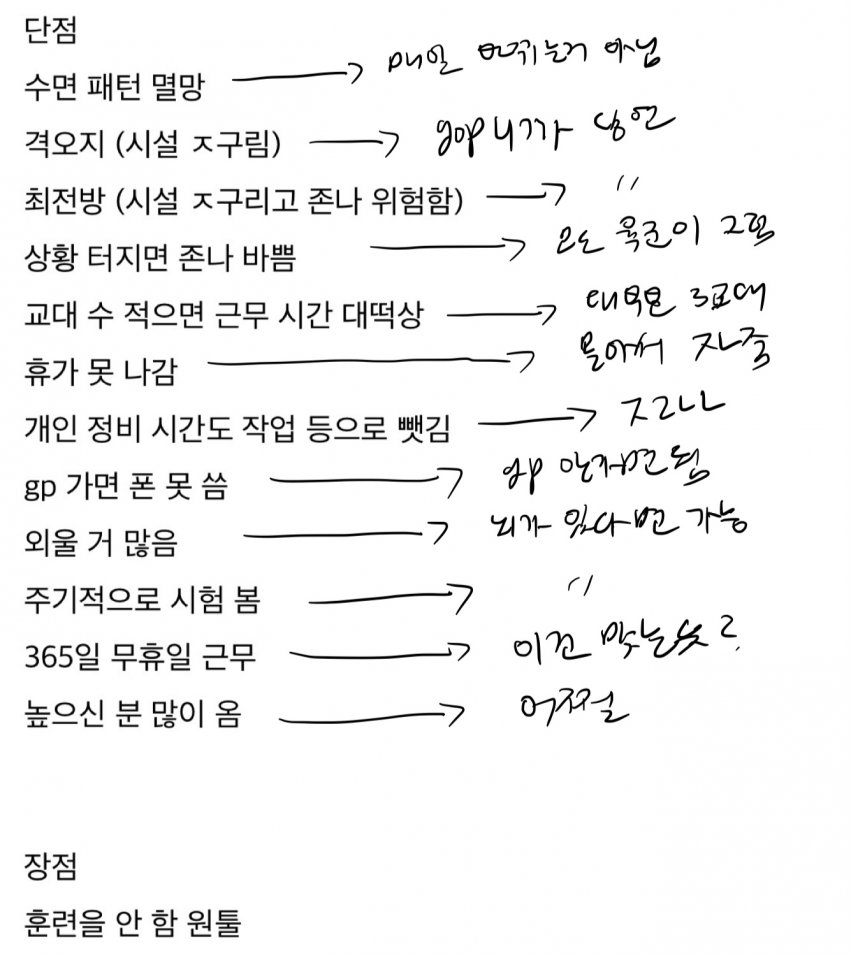 단점
수면 패턴 멸망 → 매일 바뀌는거 아님
격오지 (시설 ㅈ구림) → gop니까 당연
최전방 (시설 ㅈ구리고 존나 위험함) → "
상황 터지면 존나 바쁨 → 모든 육군이 그럼
교대 수 적으면 근무 시간 대떡상 → 대부분 3교대
휴가 못 나감 → 몰아서 자주
개인 정비 시간도 작업 등으로 뺏김 →
gp 가면 폰 못 씀 → gp 안가면 됨
외울 거 많음 → 뇌가 있다면 가능
주기적으로 시험 봄 → "
365일 무휴일 근무 → 이건 맞는듯?
높으신 분 많이 옴 → 어쩔
장점
훈련을 안 함 원툴